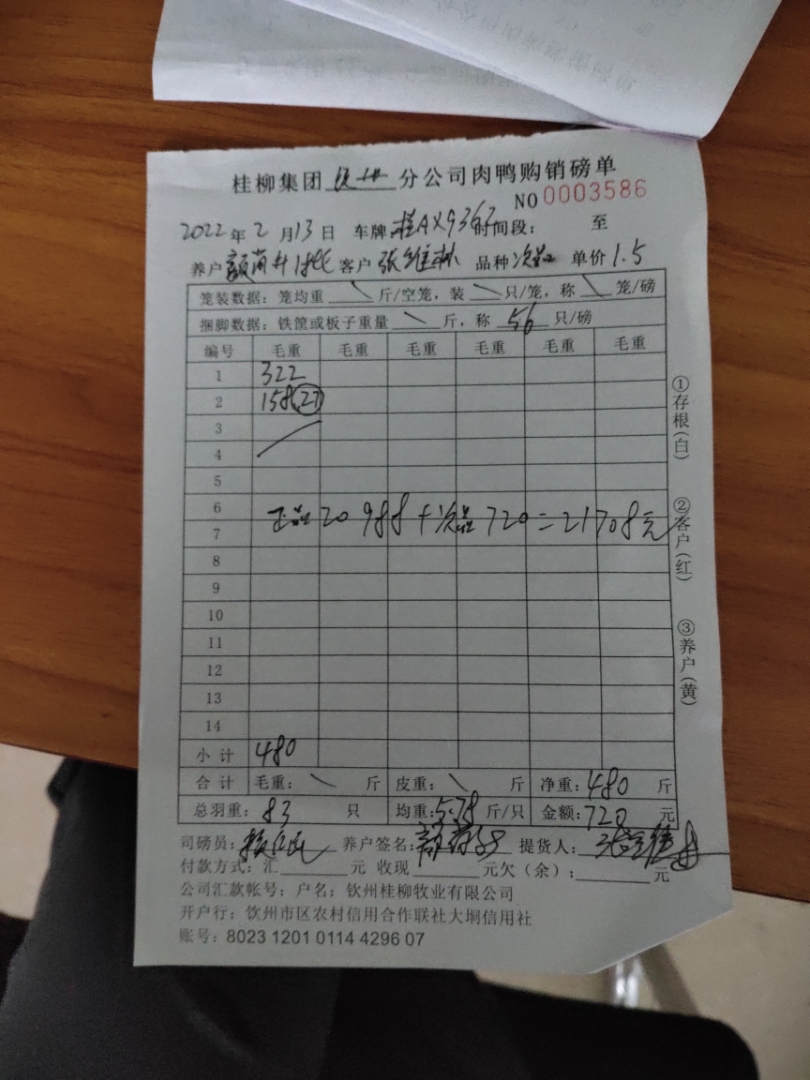 桂柳集团 钦州 分公司肉鸭购销磅单
NO 0003586
2022年2月13日 车牌:桂AX9363 时间段: 至
养户 客户 张维林 品种 次品 单价 1.5
笼装数据:笼均重 \ 斤/空笼,装 \ 只/笼,称 \ 笼/磅
捆脚数据:铁筐或板子重量 \ 斤,称 56 只/磅
编号 毛重 毛重 毛重 毛重 毛重 毛重
1 322
2 158(27)
3
4
5
6
正品20988+次品720=21708元
7
8
9
10
11
12
13
14
小计 480
合计 毛重: \ 斤 皮重: \ 斤 净重:480 斤
总羽重:83 只 均重:5.78 斤/只 金额:720 元
司磅员: 养户签名: 提货人:
付款方式:汇 元 收现 元欠(余): 元
公司汇款帐号:户名:钦州桂柳牧业有限公司
开户行:钦州市区农村信用合作联社大垌信用社
账号:8023 1201 0114 4296 07
①存根(白)
②客户(红)
③养户(黄)